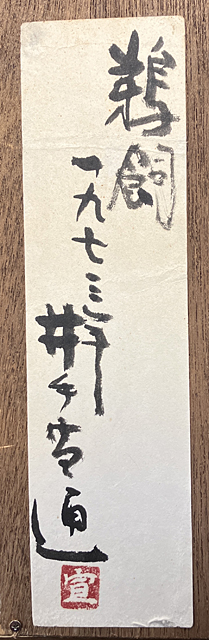 鵜飼
一九七三年
井手宣通
宣